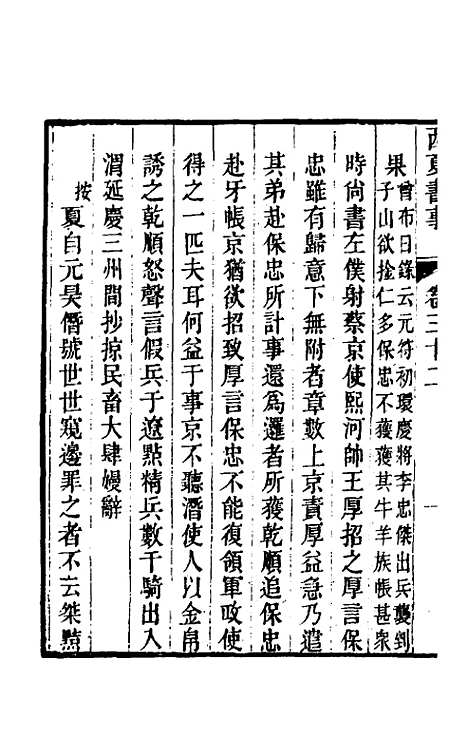 西夏書事 卷三十二 一
果曾布日錄云元符初環慶將李忠傑出兵襲到
子山欲捨仁多保忠不獲獲其牛羊族帳甚衆
時尚書左僕射蔡京使熙河帥王厚招之厚言保
忠雖有歸意下無附者章數上京責厚益急乃遣
其弟赴保忠所計事還爲邏者所獲乾順追保忠
赴牙帳京猶欲招致厚言保忠不能復領軍政使
得之一匹夫耳何益于事京不聽潛使人以金帛
誘之乾順怒聲言假兵于遼點精兵數千騎出入
渭延慶三州間抄掠民畜大肆嫚辭
按夏自元昊僭號世世窺邊罪之者不云桀黠